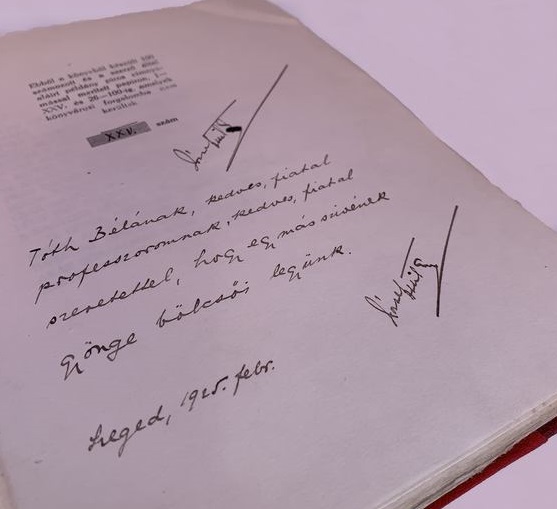 Ebből a könyvből készült 100
számozott és a szerző által
aláírt példány piros címnyo-
mással merített papiron, I—
XXV. és 26—100-ig, amelyek
könyvárusi forgalomba nem
kerültek.
XXV. szám
József Attila
Tóth Bélának, kedves, fiatal
professzoromnak, kedves, fiatal
szeretettel, hogy egymás szivének
gyönge bölcsői legyünk.
József Attila
Szeged, 1925. febr.